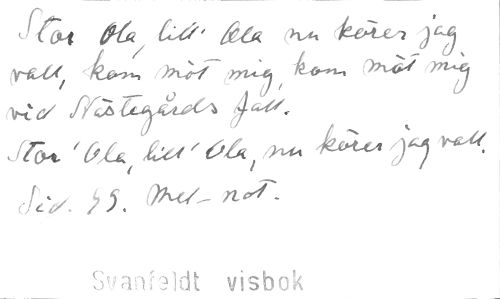 Stor Ola, lill' Ola nu körer jag
vall, kom möt mig, kom möt mig
vid Nästegårds fall.
Stor' Ola, lill' Ola, nu körer jag vall.
Sid. 49. Mel-not.
Svanfeldt visbok